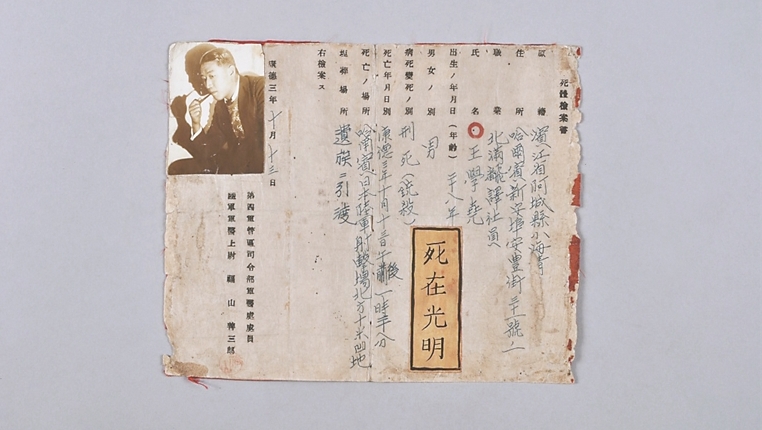 死體檢案書
原籍 濱江省阿城縣小海青
住所 哈爾賓新安埠安豐街三十一號ノ一
職業 北滿飜譯社員
氏名 王學堯
出生ノ年月日(年齡) 二十八年
男女ノ別 男
病死變死ノ別 刑死(銃殺)
死亡年月日別 康德三年十月十三日午後一時半分
死亡ノ場所 哈爾賓日本陸軍射擊場北方十米凹地
埋葬場所 遺族ニ引渡
右檢案ス
康德三年十月十三日
第四軍管區司令部軍醫處處員
陸軍軍醫上尉 福山彝三郎
死在光明